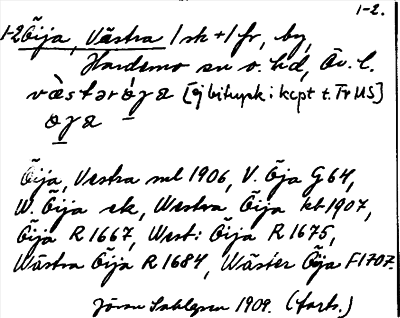 1-2.
1-2 Öija, Västra 1 sk + 1 fr, by,
Hardemo sn o. hd, Ör. l.
[ej bihusk i kcpt t. Tr US]
Öija, Vestra ml 1906, V. Öja G 64,
W. Öija ek, Westra Öija kb 1907,
Öija R 1667, West: Öija R 1675,
Wästra Öija R 1684, Wäster Öija F 1707.
Jöran Sahlgren 1909. (forts.)